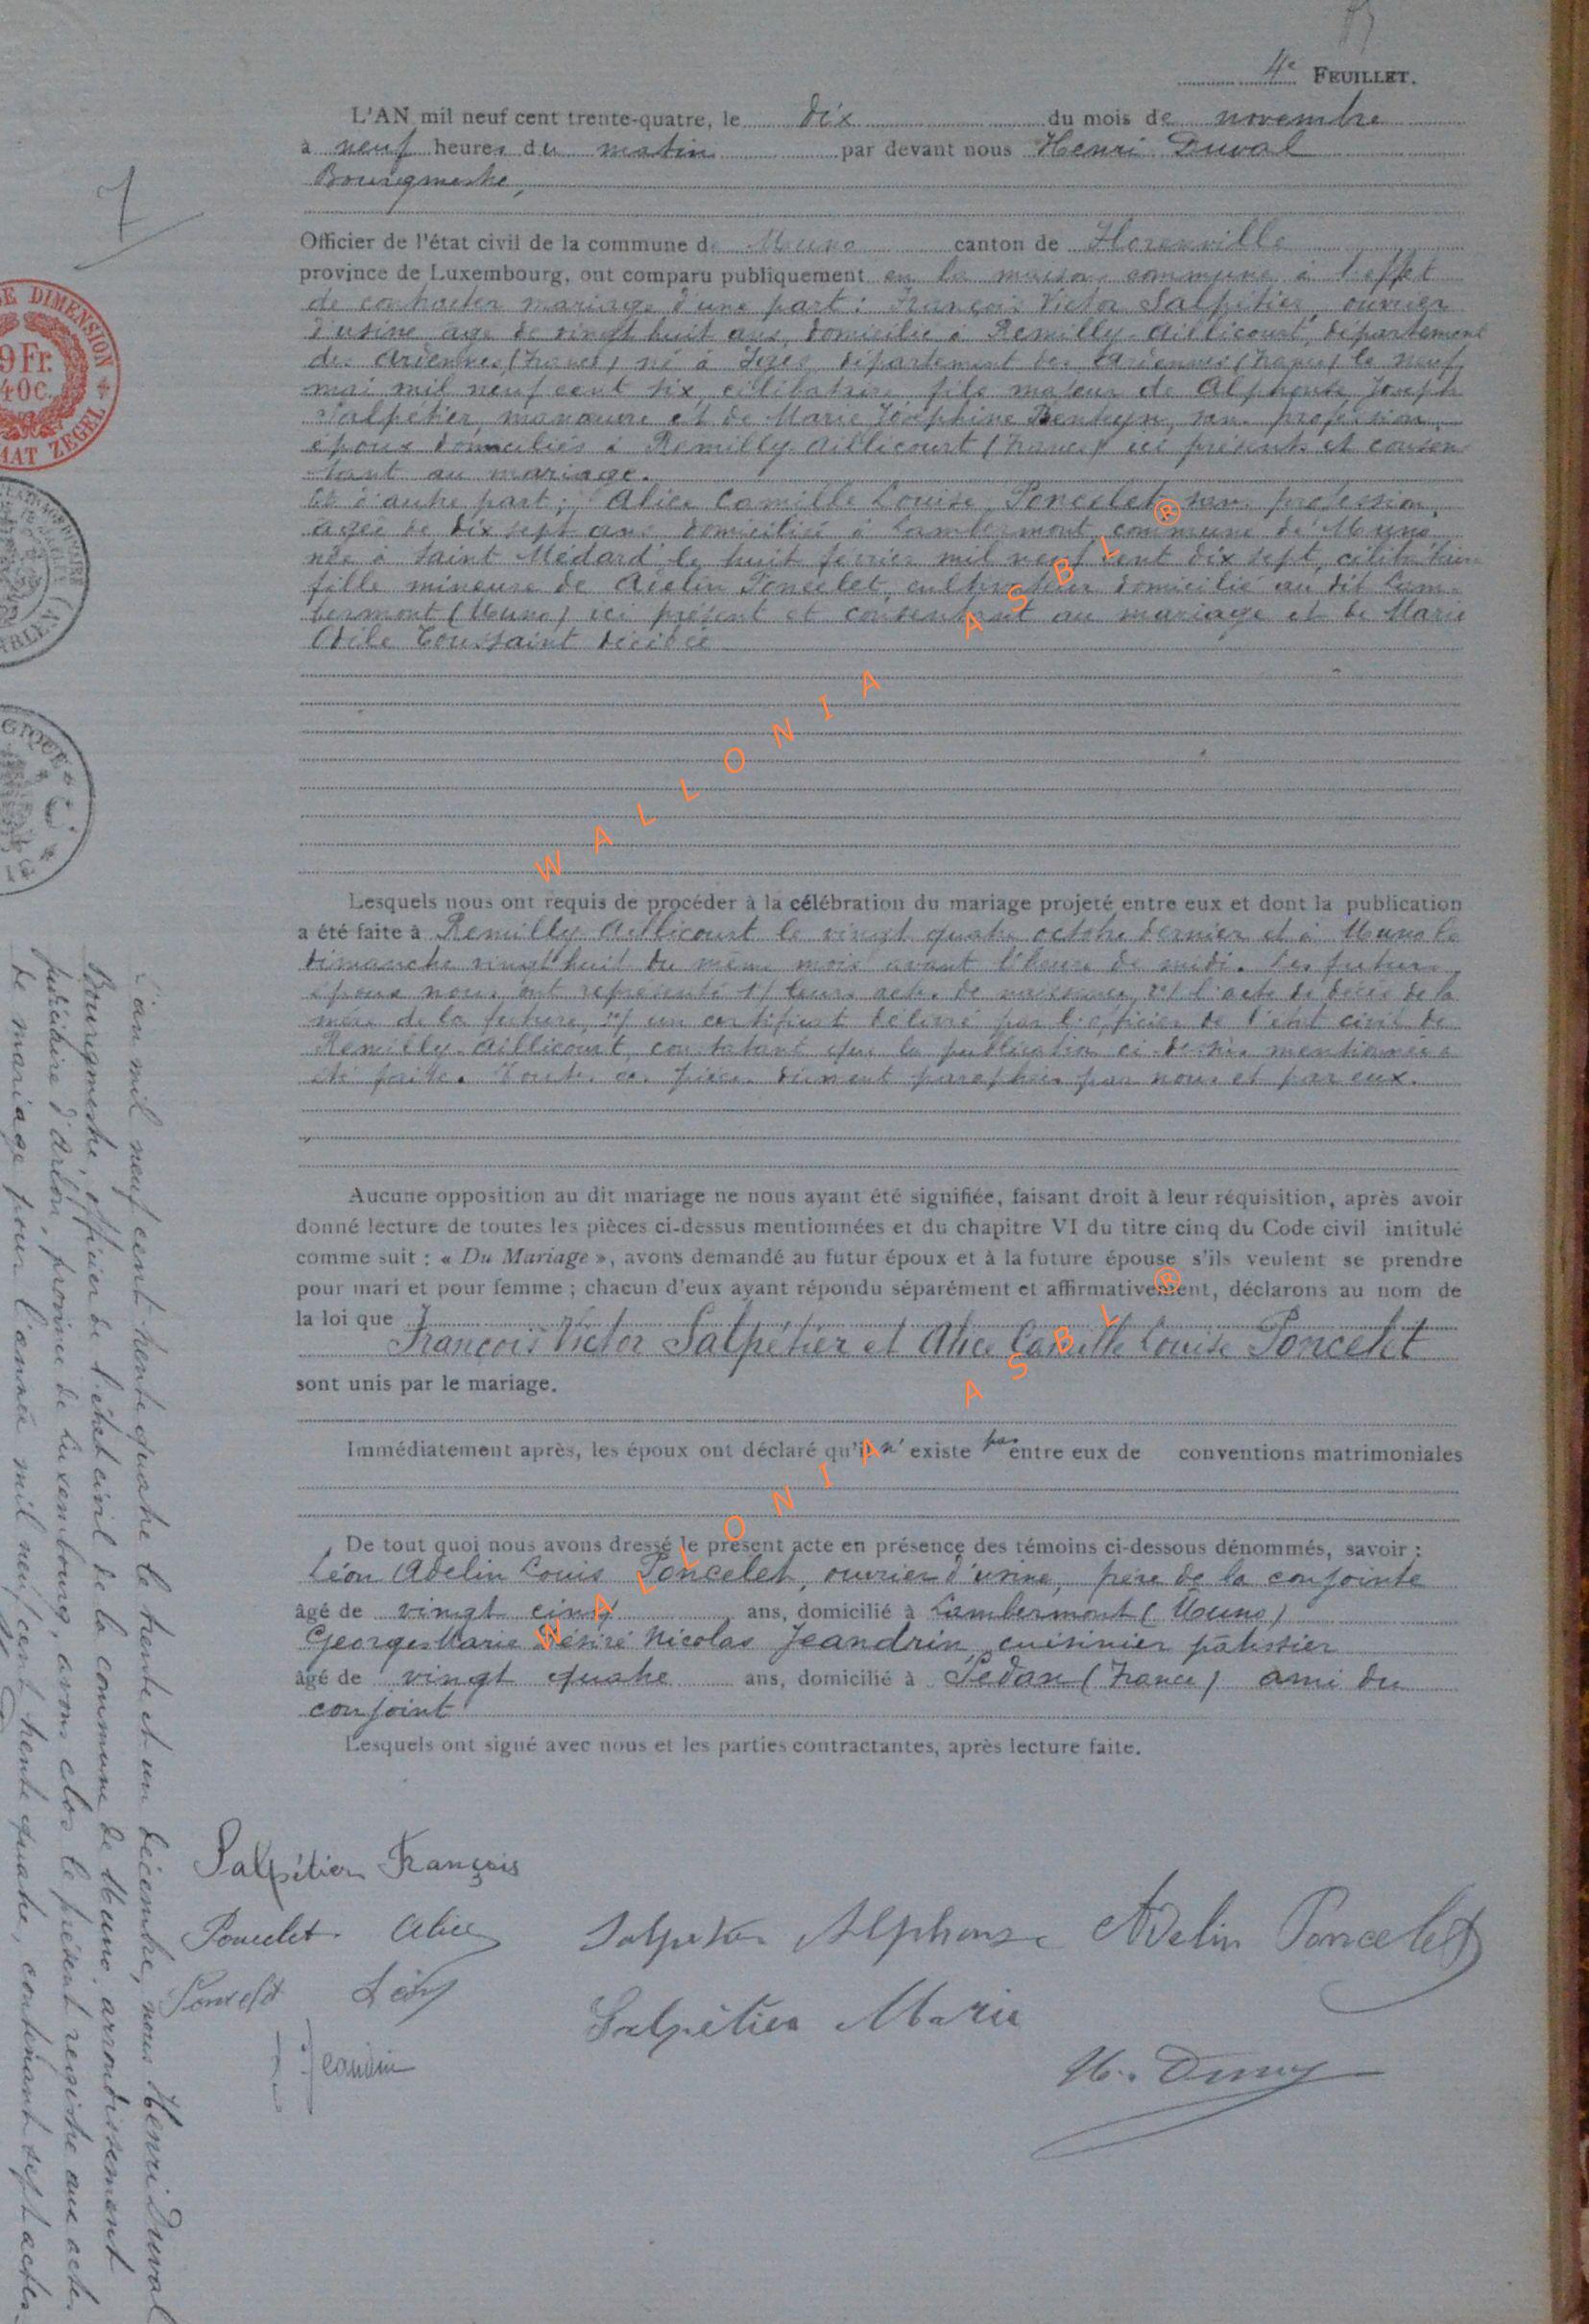 4e FEUILLET.
L'AN mil neuf cent trente-quatre, le dix du mois de novembre
à neuf heures du matin par devant nous Henri Duval
Bourgmestre,
Officier de l'état civil de la commune de Muno canton de Florenville
province de Luxembourg, ont comparu publiquement en la maison commune à l'effet
de contracter mariage d'une part: François Victor Salpétier, ouvrier
d'usine âgé de vingt huit ans, domicilié à Remilly-Aillicourt, département
des Ardennes (France) né à département des Ardennes (France) le neuf
mai mil neuf cent six célibataire fils majeur de Alphonse Joseph
Salpétier, manœuvre et de Marie Joséphine sans profession,
époux domiciliés à Remilly-Aillicourt (France) ici présents et consen
tant au mariage.
Et d'autre part; Alice Camille Louise Poncelet, sans profession,
âgée de dix sept ans domiciliée à Lambermont, commune de Muno
née à Saint Médard le huit février mil neuf cent dix sept, célibataire
fille mineure de Adelin Poncelet, cultivateur domicilié au dit Lam-
bermont (Muno) ici présent et consentant au mariage et de Marie
Odile Toussaint décédée
Lesquels nous ont requis de procéder à la célébration du mariage projeté entre eux et dont la publication
a été faite à Remilly Aillicourt le vingt quatre octobre dernier et à Muno le
dimanche vingt huit du même mois avant l'heure de midi. Les futurs
époux nous ont représenté 1/ leurs actes de naissance, 2/ l'acte de décès de la
mère de la future, 3/ un certificat délivré par l'officier de l'état civil de
Remilly-Aillicourt, constatant que la publication ci-dessus mentionnée a
été faite. Toutes ces pièces dûment paraphées par nous et par eux.
Aucune opposition au dit mariage ne nous ayant été signifiée, faisant droit à leur réquisition, après avoir
donné lecture de toutes les pièces ci-dessus mentionnées et du chapitre VI du titre cinq du Code civil intitulé
comme suit : « Du Mariage », avons demandé au futur époux et à la future épouse s'ils veulent se prendre
pour mari et pour femme ; chacun d'eux ayant répondu séparément et affirmativement, déclarons au nom de
la loi que
François Victor Salpétier et Alice Camille Louise Poncelet
sont unis par le mariage.
Immédiatement après, les époux ont déclaré qu'il n' existe pas entre eux de conventions matrimoniales
De tout quoi nous avons dressé le présent acte en présence des témoins ci-dessous dénommés, savoir :
Léon Adelin Louis Poncelet, ouvrier d'usine, père de la conjointe
âgé de vingt cinq ans, domicilié à Lambermont (Muno)
Georges Marie Désiré Nicolas Jeandrin cuisinier pâtissier
âgé de vingt quatre ans, domicilié à Sedan (France) ami du
conjoint
Lesquels ont signé avec nous et les parties contractantes, après lecture faite.
Salpétier François
Poncelet Alice
Salpétier Alphonse
Adelin Poncelet
Poncelet Léon
Salpétier Marie
Jeandrin
H. Duval
L'an mil neuf cent trente quatre le trente et un décembre, nous Henri Duval
Bourgmestre, officier de l'état civil de la commune de Muno, arrondissement
judiciaire d'Arlon, province de Luxembourg, avons clos le présent registre aux actes
de mariage pour l'année mil neuf cent trente quatre, contenant sept actes
E DIMENSION
9 Fr.
40c.
MAT ZEGEL
WALLONIA ASBL ®
WALLONIA ASBL ®